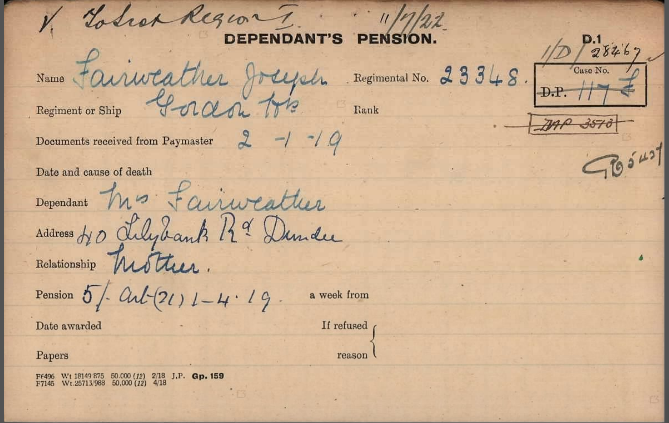 To Scot Region I. 11/7/22
DEPENDANT'S PENSION. D.1
1/D/ 28467
Name Fairweather Joseph Regimental No. 23348. Case No.
D.P. 117
Regiment or Ship Gordon Hrs Rank
DAP 3510
Documents received from Paymaster 2-1-19
Date and cause of death
Dependant Mrs Fairweather
Address 40 Lilybank Rd Dundee
Relationship Mother.
Pension 5/- Art (21) 1-4-19. a week from
Date awarded If refused
Papers reason
F6496 Wt 18149 875 50,000 (12) 2/18 J.P. Gp. 159
F7145 Wt.25713/988 50,000 (12) 4/18